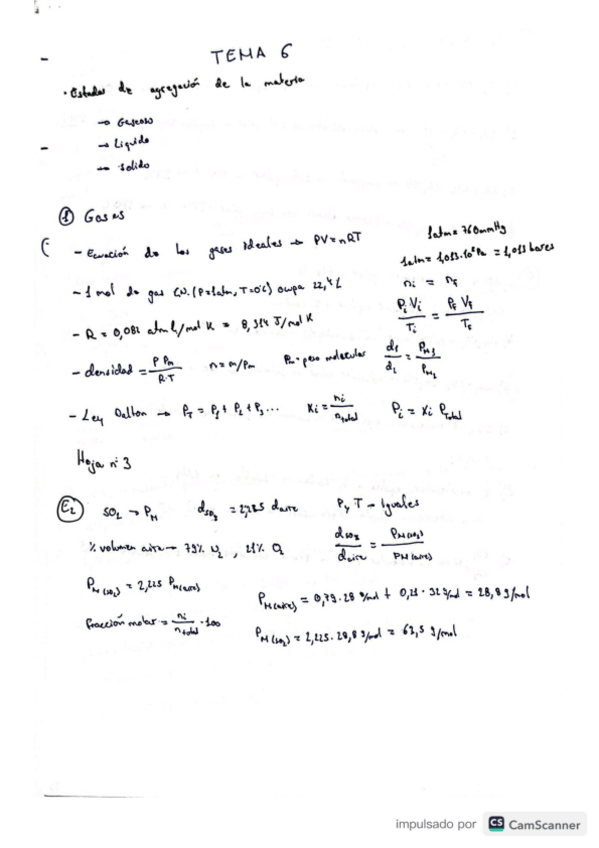 TEMA 6
· Estados de agregación de la materia
→ Gaseoso
→ Liquido
→ Solido
① Gases
- Ecuación de los gases ideales → PV = nRT
1atm = 760mmHg
1atm = 1,013·10⁵Pa = 1,013 bares
- 1 mol de gas C.N. (P=1atm, T=0ºC) ocupa 22,4 L
ni = nf
Pi Vi / Ti = Pf Vf / Tf
- R = 0,082 atm L/mol K = 8,314 J/mol K
- densidad = P Pm / R·T n = m/Pm Pm - peso molecular d1/d2 = Pm1/Pm2
- Ley Dalton → PT = P1 + P2 + P3 ... Xi = ni/ntotal Pi = Xi Ptotal
Hoja nº 3
E2 SO2 → PM dSO2 = daire P y T - Iguales
% volumen aire → 79% N2, 21% O2 dSO2/daire = PM(SO2)/PM(aire)
PM(SO2) = 2,225 PM(aire)
PM(aire) = 0,79·28 g/mol + 0,21·32 g/mol = 28,8 g/mol
Fracción molar = ni/ntotal ·100
PM(SO2) = 2,225·28,8 g/mol = 63,5 g/mol
impulsado por CS CamScanner